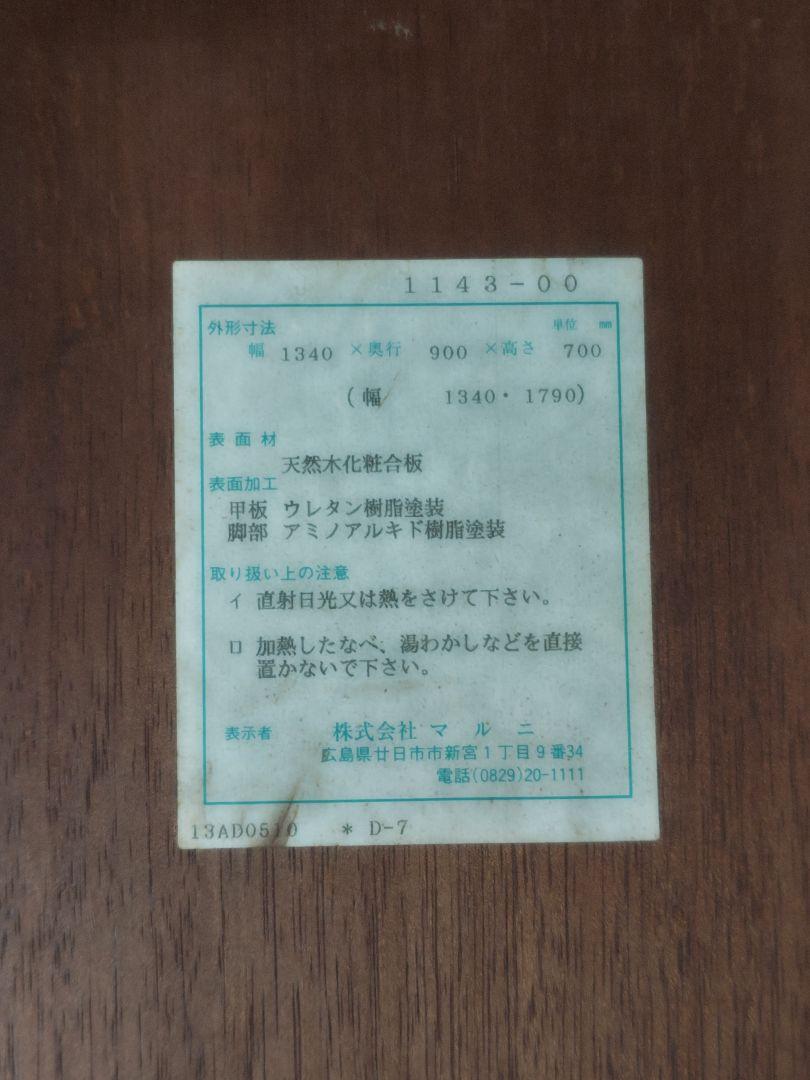 1143-00
外形寸法 単位 mm
幅 1340 ×奥行 900 ×高さ 700
(幅 1340・1790)
表面材
天然木化粧合板
表面加工
甲板 ウレタン樹脂塗装
脚部 アミノアルキド樹脂塗装
取り扱い上の注意
イ 直射日光又は熱をさけて下さい。
ロ 加熱したなべ、湯わかしなどを直接
置かないで下さい。
表示者 株式会社 マルニ
広島県廿日市市新宮1丁目9番34
電話(0829)20-1111
13AD0510 * D-7